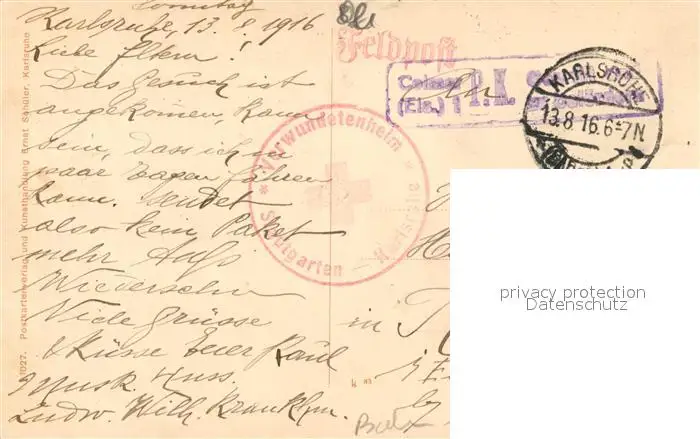 Sonntag
Karlsruhe, 13. 8 1916
Liebe Eltern!
Das Gesuch ist
angekommen, kann
sein, dass ich in
paar Tagen fahren
kann. Sendet
also kein Paket
mehr Aufs
Wiedersehn
Viele Grüsse
& Küsse Euer Paul
Musk. Huss.
Ludw. Wilh. Krankhm.
1027. Postkartenverlag und Kunsthandlung Ernst Schüler, Karlsruhe
Feldpost
An
Colmar P.K.
(Els.) 1
KARLSRUHE
13.8.16.6-7N
Verwundetenheim
Stadtgarten Karlsruhe
in
privacy protection
Datenschutz